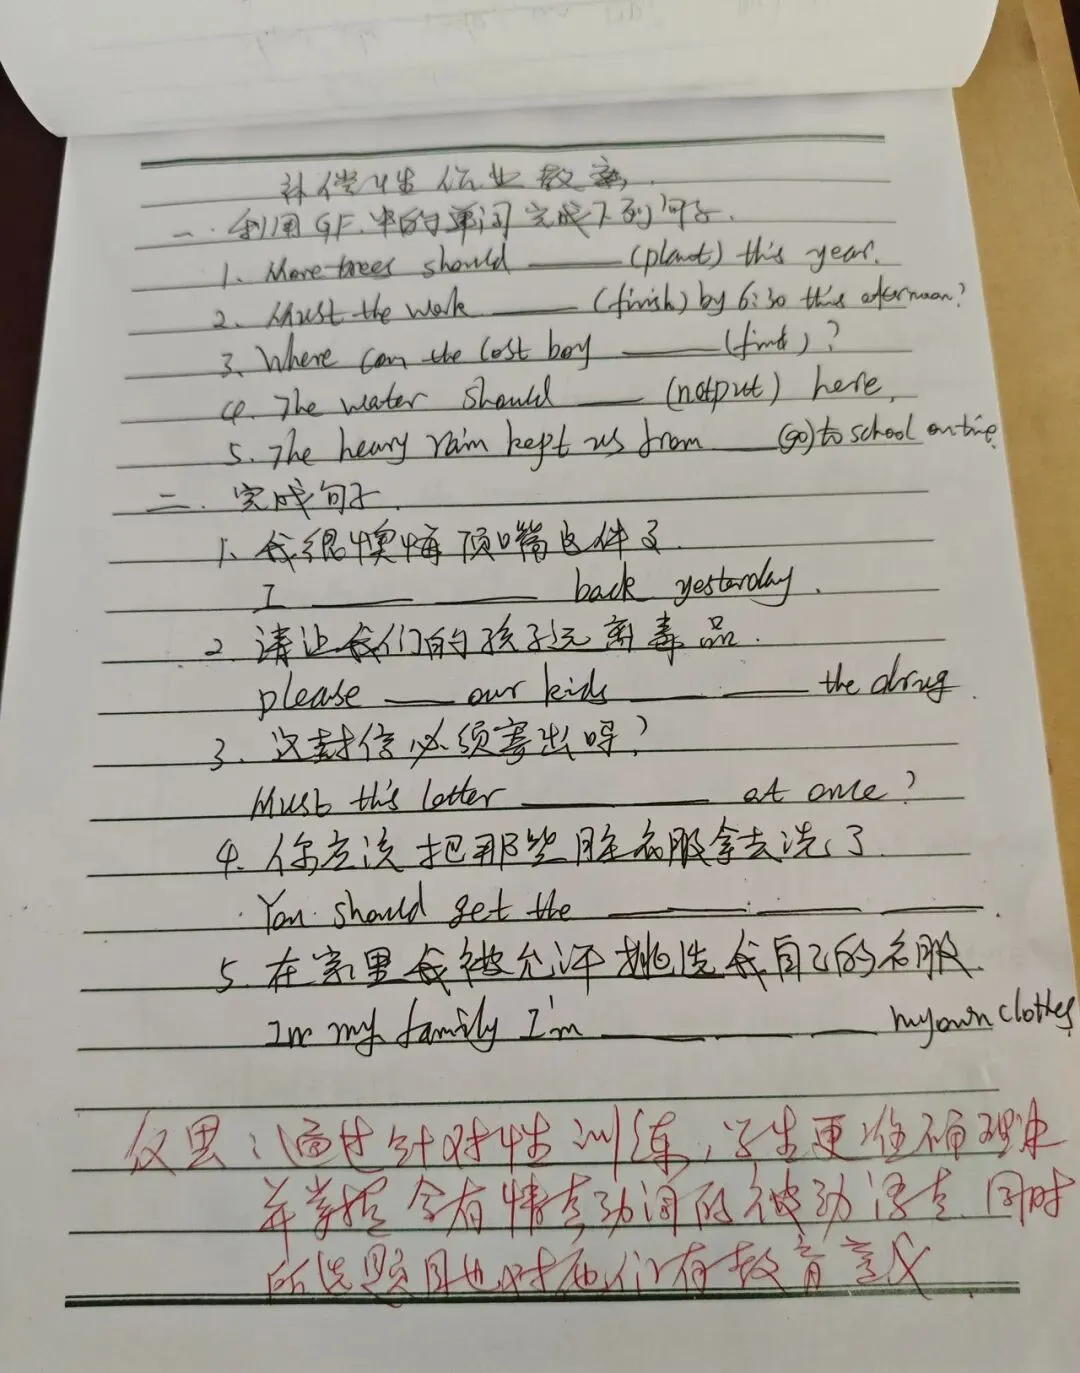 补偿性作业教案
一. 利用所给的单词完成下列句子.
1. More trees should ____ (plant) this year.
2. Must the work ____ (finish) by 6:30 this afternoon?
3. Where can the lost boy ____ (find)?
4. The water should ____ (not put) here.
5. The heavy rain kept us from ____ (go) to school on time
二. 完成句子.
1. 我很懊悔顶嘴这件事.
I ____ ____ back yesterday.
2. 请让我们的孩子远离毒品.
please ____ our kids ____ ____ the drug.
3. 这封信必须寄出吗?
Must this letter ____ ____ at once?
4. 你应该把那些脏衣服拿去洗了.
You should get the ____ ____ ____.
5. 在家里我被允许挑选我自己的衣服.
In my family I'm ____ ____ ____ my own clothes.
反思:通过针对性训练,学生更准确理解
并掌握含有情态动词的被动语态.同时
所选题目也对他们有教育意义